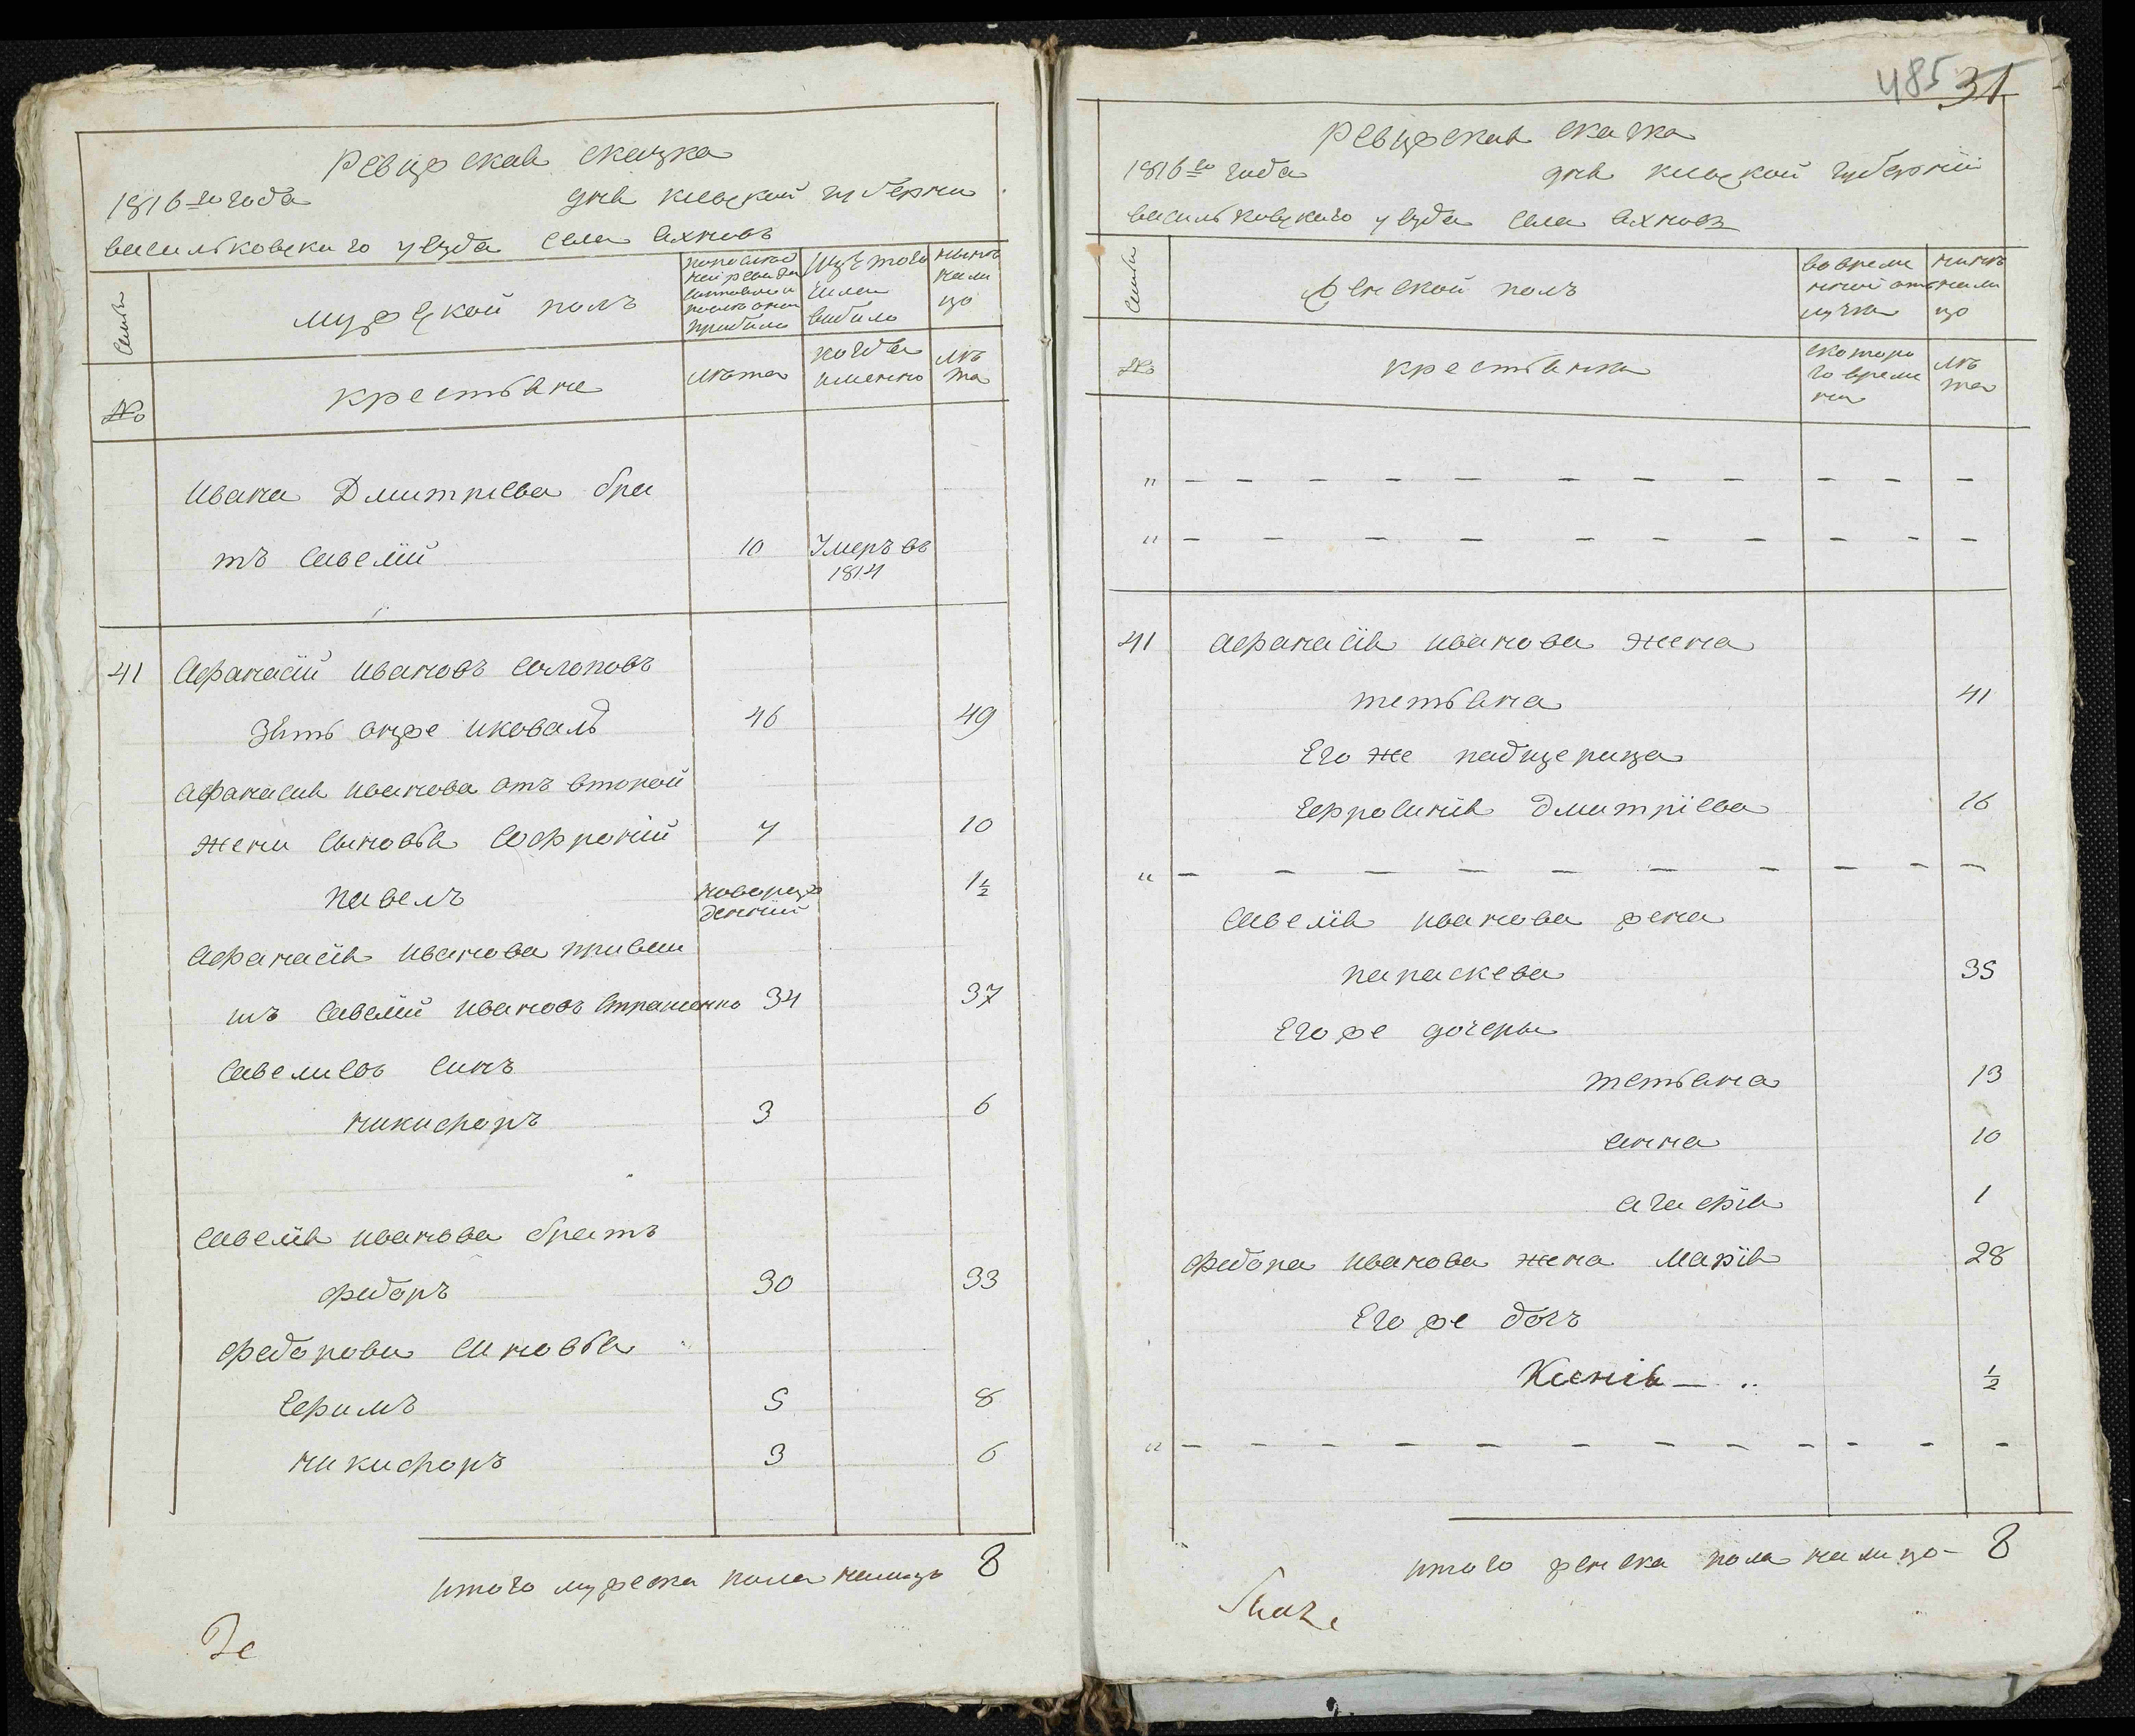 Ревизская сказка
1816го года дня киевской губернии
васильковского уезда села Яхновъ
Семьи
мужеской полъ
по последней ревизии состояло и после оной прибыло
Изъ того числа выбыло
нынъ на лицо
№
крестьяне
лѣта
когда именно
лѣта
Ивана Дмитриева бра
тъ Савелiй 10 Умеръ въ 1814
41 Афанасiй Ивановъ Солоповъ
Зять онже иковаль 46 49
Афанасия Иванова отъ второй
жени сыновья Софронiй 7 10
павелъ новорожденнiй 1½
Афанасiя Иванова приймы
шъ Савелiй Ивановъ Страшенко 34 37
Савелиевъ синъ
никифоръ 3 6
Савелiя Иванова братъ
федоръ 30 33
Федорови синовья
Ефимъ 5 8
никифоръ 3 6
итого мужеска пола налицо 8
485 31
Ревизская скаска
1816го года дня киевской губернiи
васильковского уезда села Яхновъ
Семьи
Женской полъ
во временной отлучке
нинѣ на лицо
№
крестьянки
с которого времени
лѣта
" – – – – – – – – – –
" – – – – – – – – – –
41 Афанасiя Иванова жена
тетьяна 41
Его же падщерица
Ефросинiя Дмитрiева 16
" – – – – – – – – – –
Савелiя Иванова жена
параскева 35
Его же дочеры
тетьяна 13
анна 10
агафiя 1
Федора Иванова жена Марiя 28
Его же дочъ
Ксенiя – .. ½
" – – – – – – – – – –
итого женска пола на лицо – 8